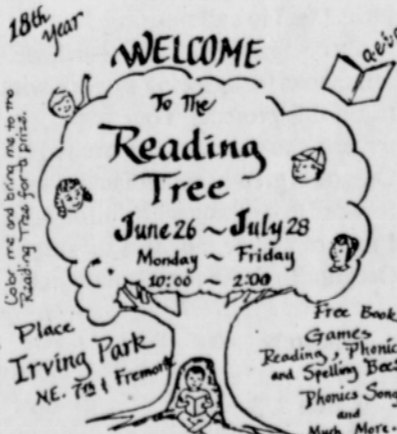 18th
Year
WELCOME
To The
Reading
Tree
June 26 ~ July 28
Monday ~ Friday
10:00 ~ 2:00
Color me and bring me to the
Reading Tree for a prize.
Place
Irving Park
N.E. 7th & Fremont
Free Book
Games
Reading, Phonic
and Spelling Bees
Phonics Song
and
Much More.